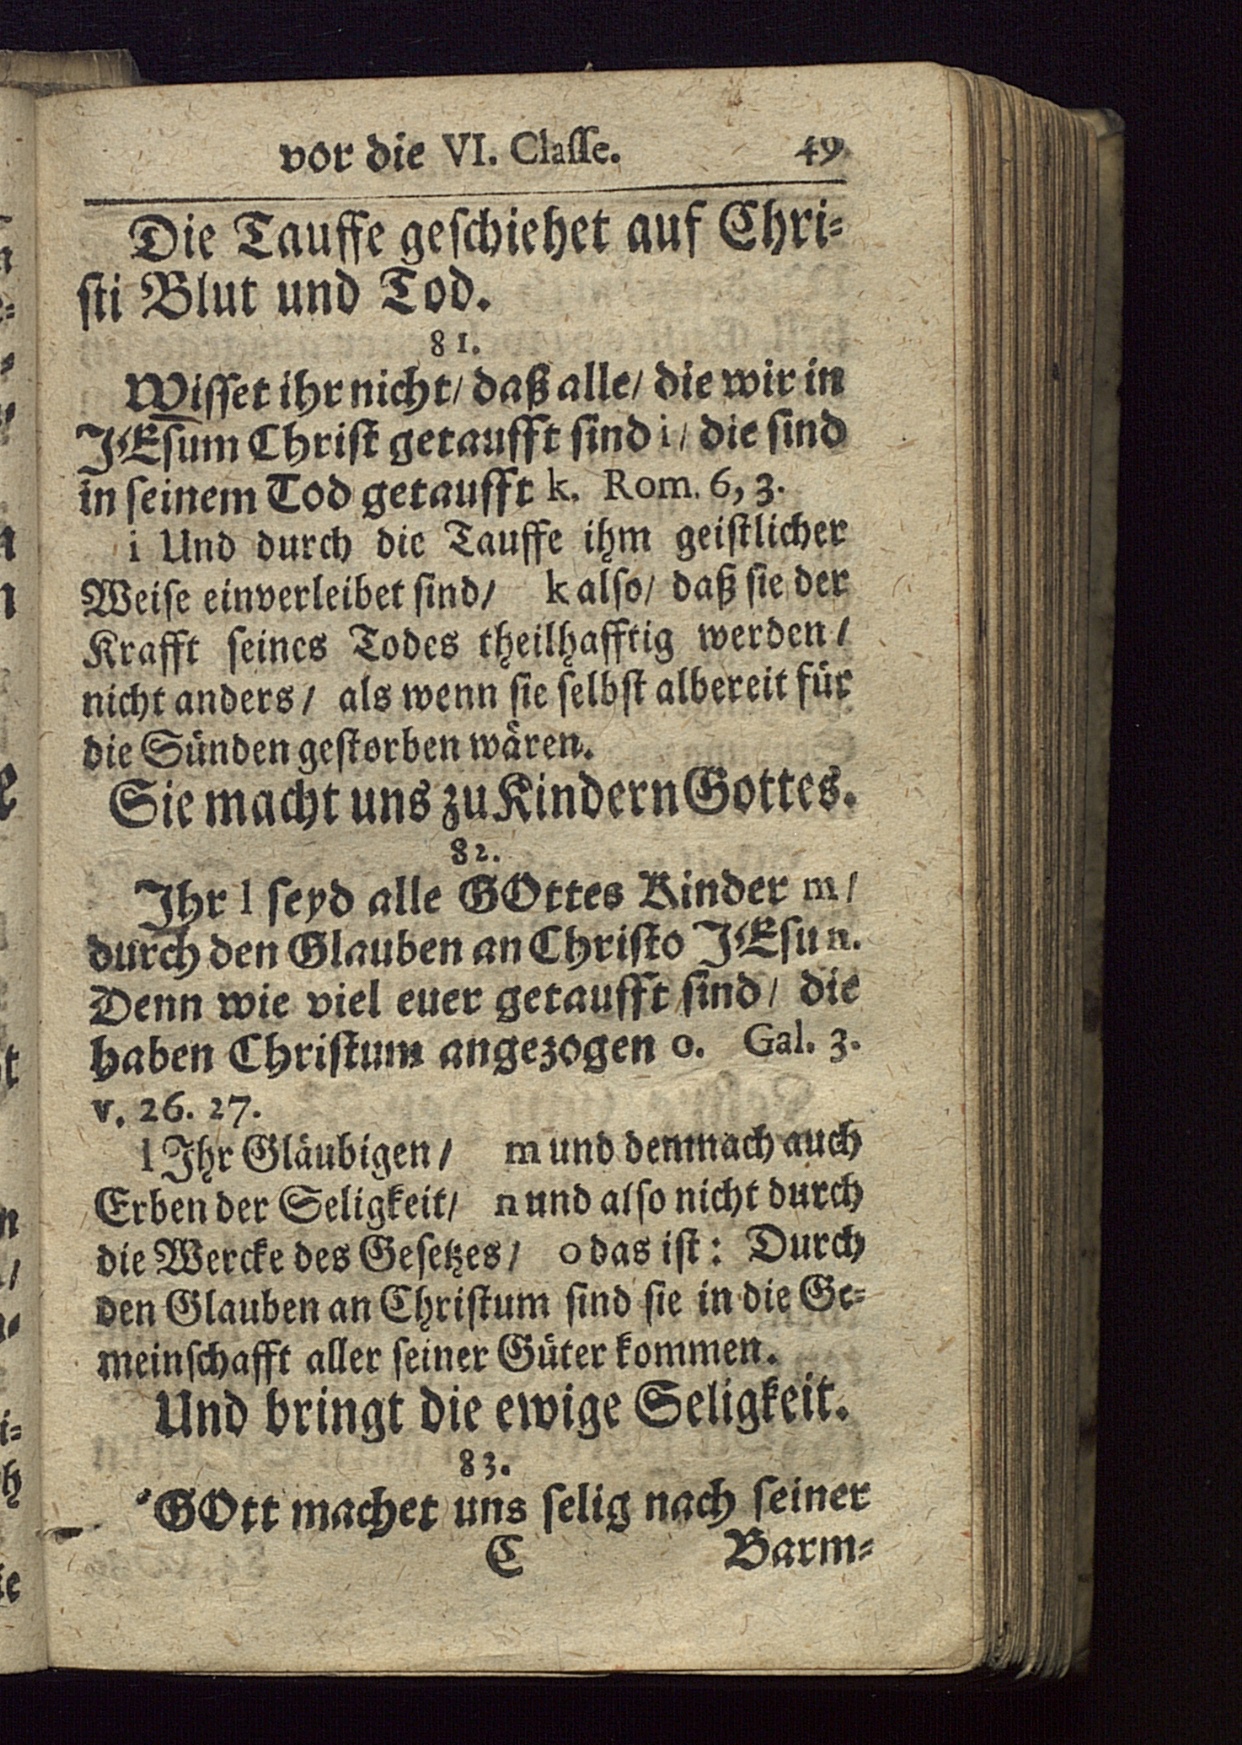 vor die VI. Claſſe. 49
Die Tauffe geſchiehet auf Chri-
ſti Blut und Tod.
81.
Wiſſet ihr nicht/ daß alle/ die wir in
JEſum Chriſt getaufft ſind i/ die ſind
in ſeinem Tod getaufft k. Rom. 6, 3.
i Und durch die Tauffe ihm geiſtlicher
Weiſe einverleibet ſind/ k alſo/ daß ſie der
Krafft ſeines Todes theilhafftig werden/
nicht anders/ als wenn ſie ſelbſt albereit für
die Sünden geſtorben wären.
Sie macht uns zu Kindern Gottes.
82.
Ihr l ſeyd alle GOttes Kinder m/
durch den Glauben an Chriſto JEſu n.
Denn wie viel euer getaufft ſind/ die
haben Chriſtum angezogen o. Gal. 3.
v. 26. 27.
l Ihr Gläubigen/ m und demnach auch
Erben der Seligkeit/ n und alſo nicht durch
die Wercke des Geſetzes/ o das iſt: Durch
den Glauben an Chriſtum ſind ſie in die Ge-
meinſchafft aller ſeiner Güter kommen.
Und bringt die ewige Seligkeit.
83.
GOtt machet uns ſelig nach ſeiner
C Barm-